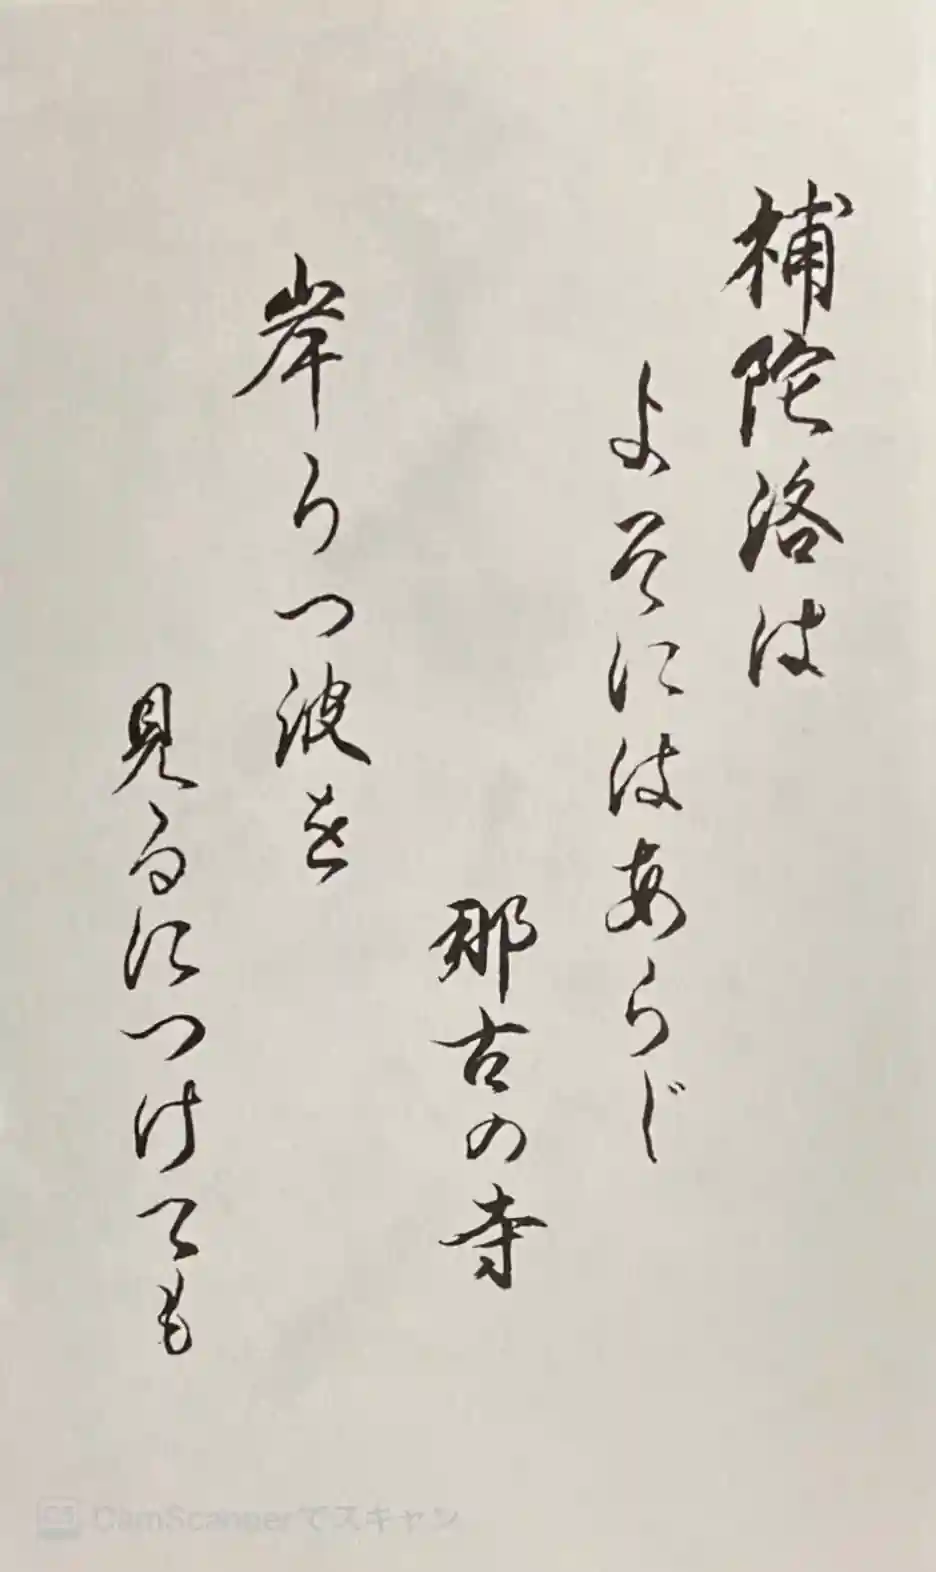 補陀洛は
よそにはあらじ
那古の寺
岸うつ波を
見るにつけても
CamScannerでスキャン